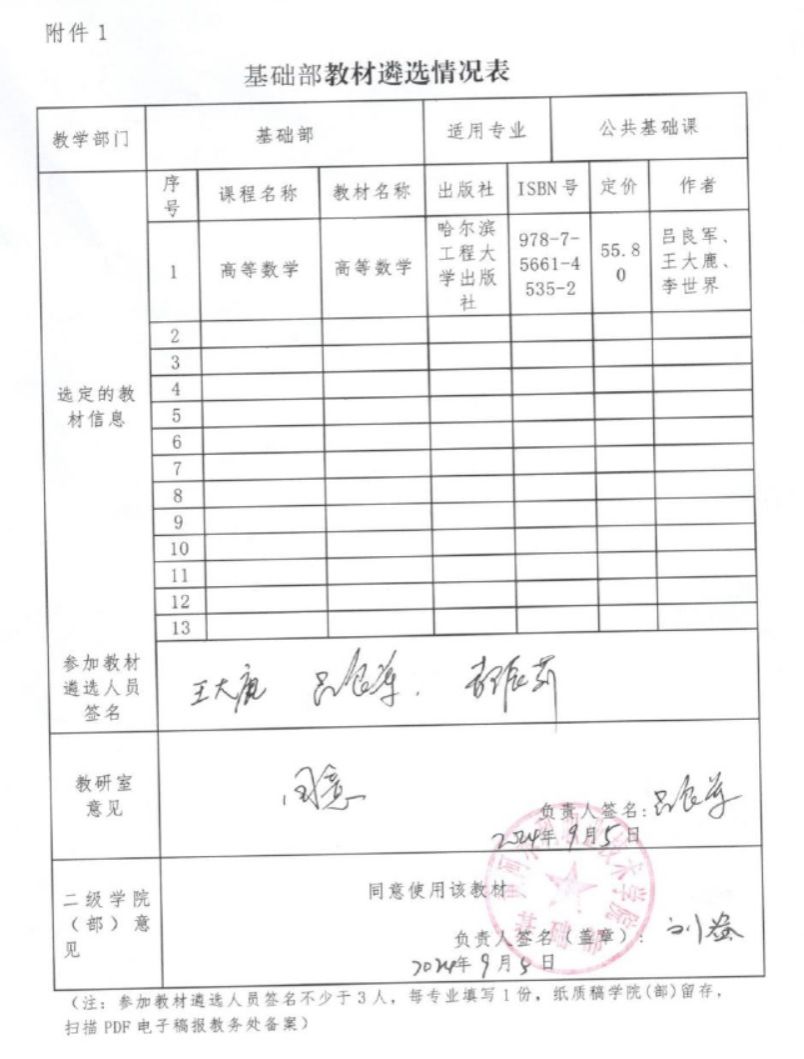 附件 1
基础部教材遴选情况表
教学部门 基础部 适用专业 公共基础课
选定的教材信息
序号 课程名称 教材名称 出版社 ISBN 号 定价 作者
1 高等数学 高等数学 哈尔滨工程大学出版社 978-7-5661-4535-2 55.80 吕良军、王大鹿、李世界
2
3
4
5
6
7
8
9
10
11
12
13
参加教材
遴选人员
签名
王大鹿 吕良军.
教研室
意见
同意
负责人签名: 吕良军
2024年 9月5日
二级学院
（部）意
见
同意使用该教材
负责人签名（盖章）:
2024年 9月5日
（注: 参加教材遴选人员签名不少于 3 人, 每专业填写 1 份, 纸质稿学院(部)留存,
扫描 PDF 电子稿报教务处备案）